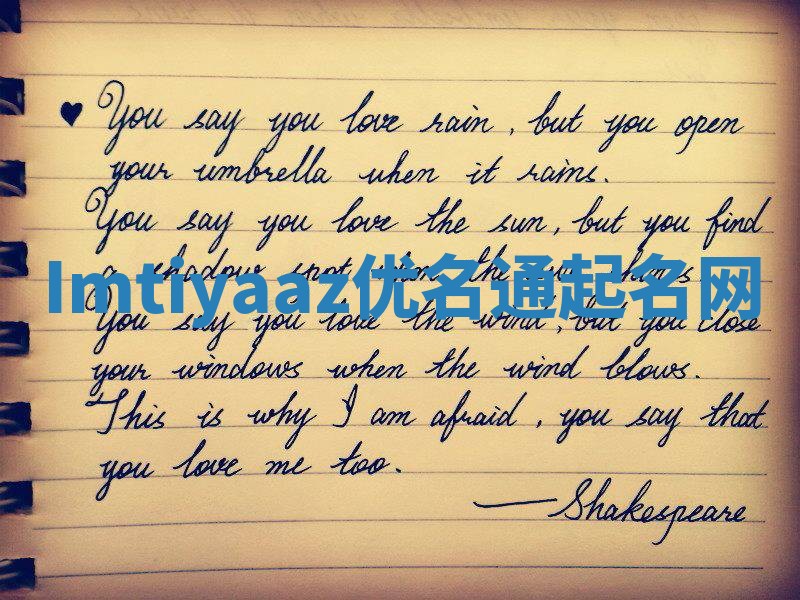 ♥ You say you love rain, but you open
your umbrella when it rains.
You say you love the sun, but you find
a shadow spot when the sun shines
Imtiyaaz优名通起名网
You say you love the wind, but you close
your windows when the wind blows.
This is why I am afraid, you say that
you love me too.
—Shakespeare